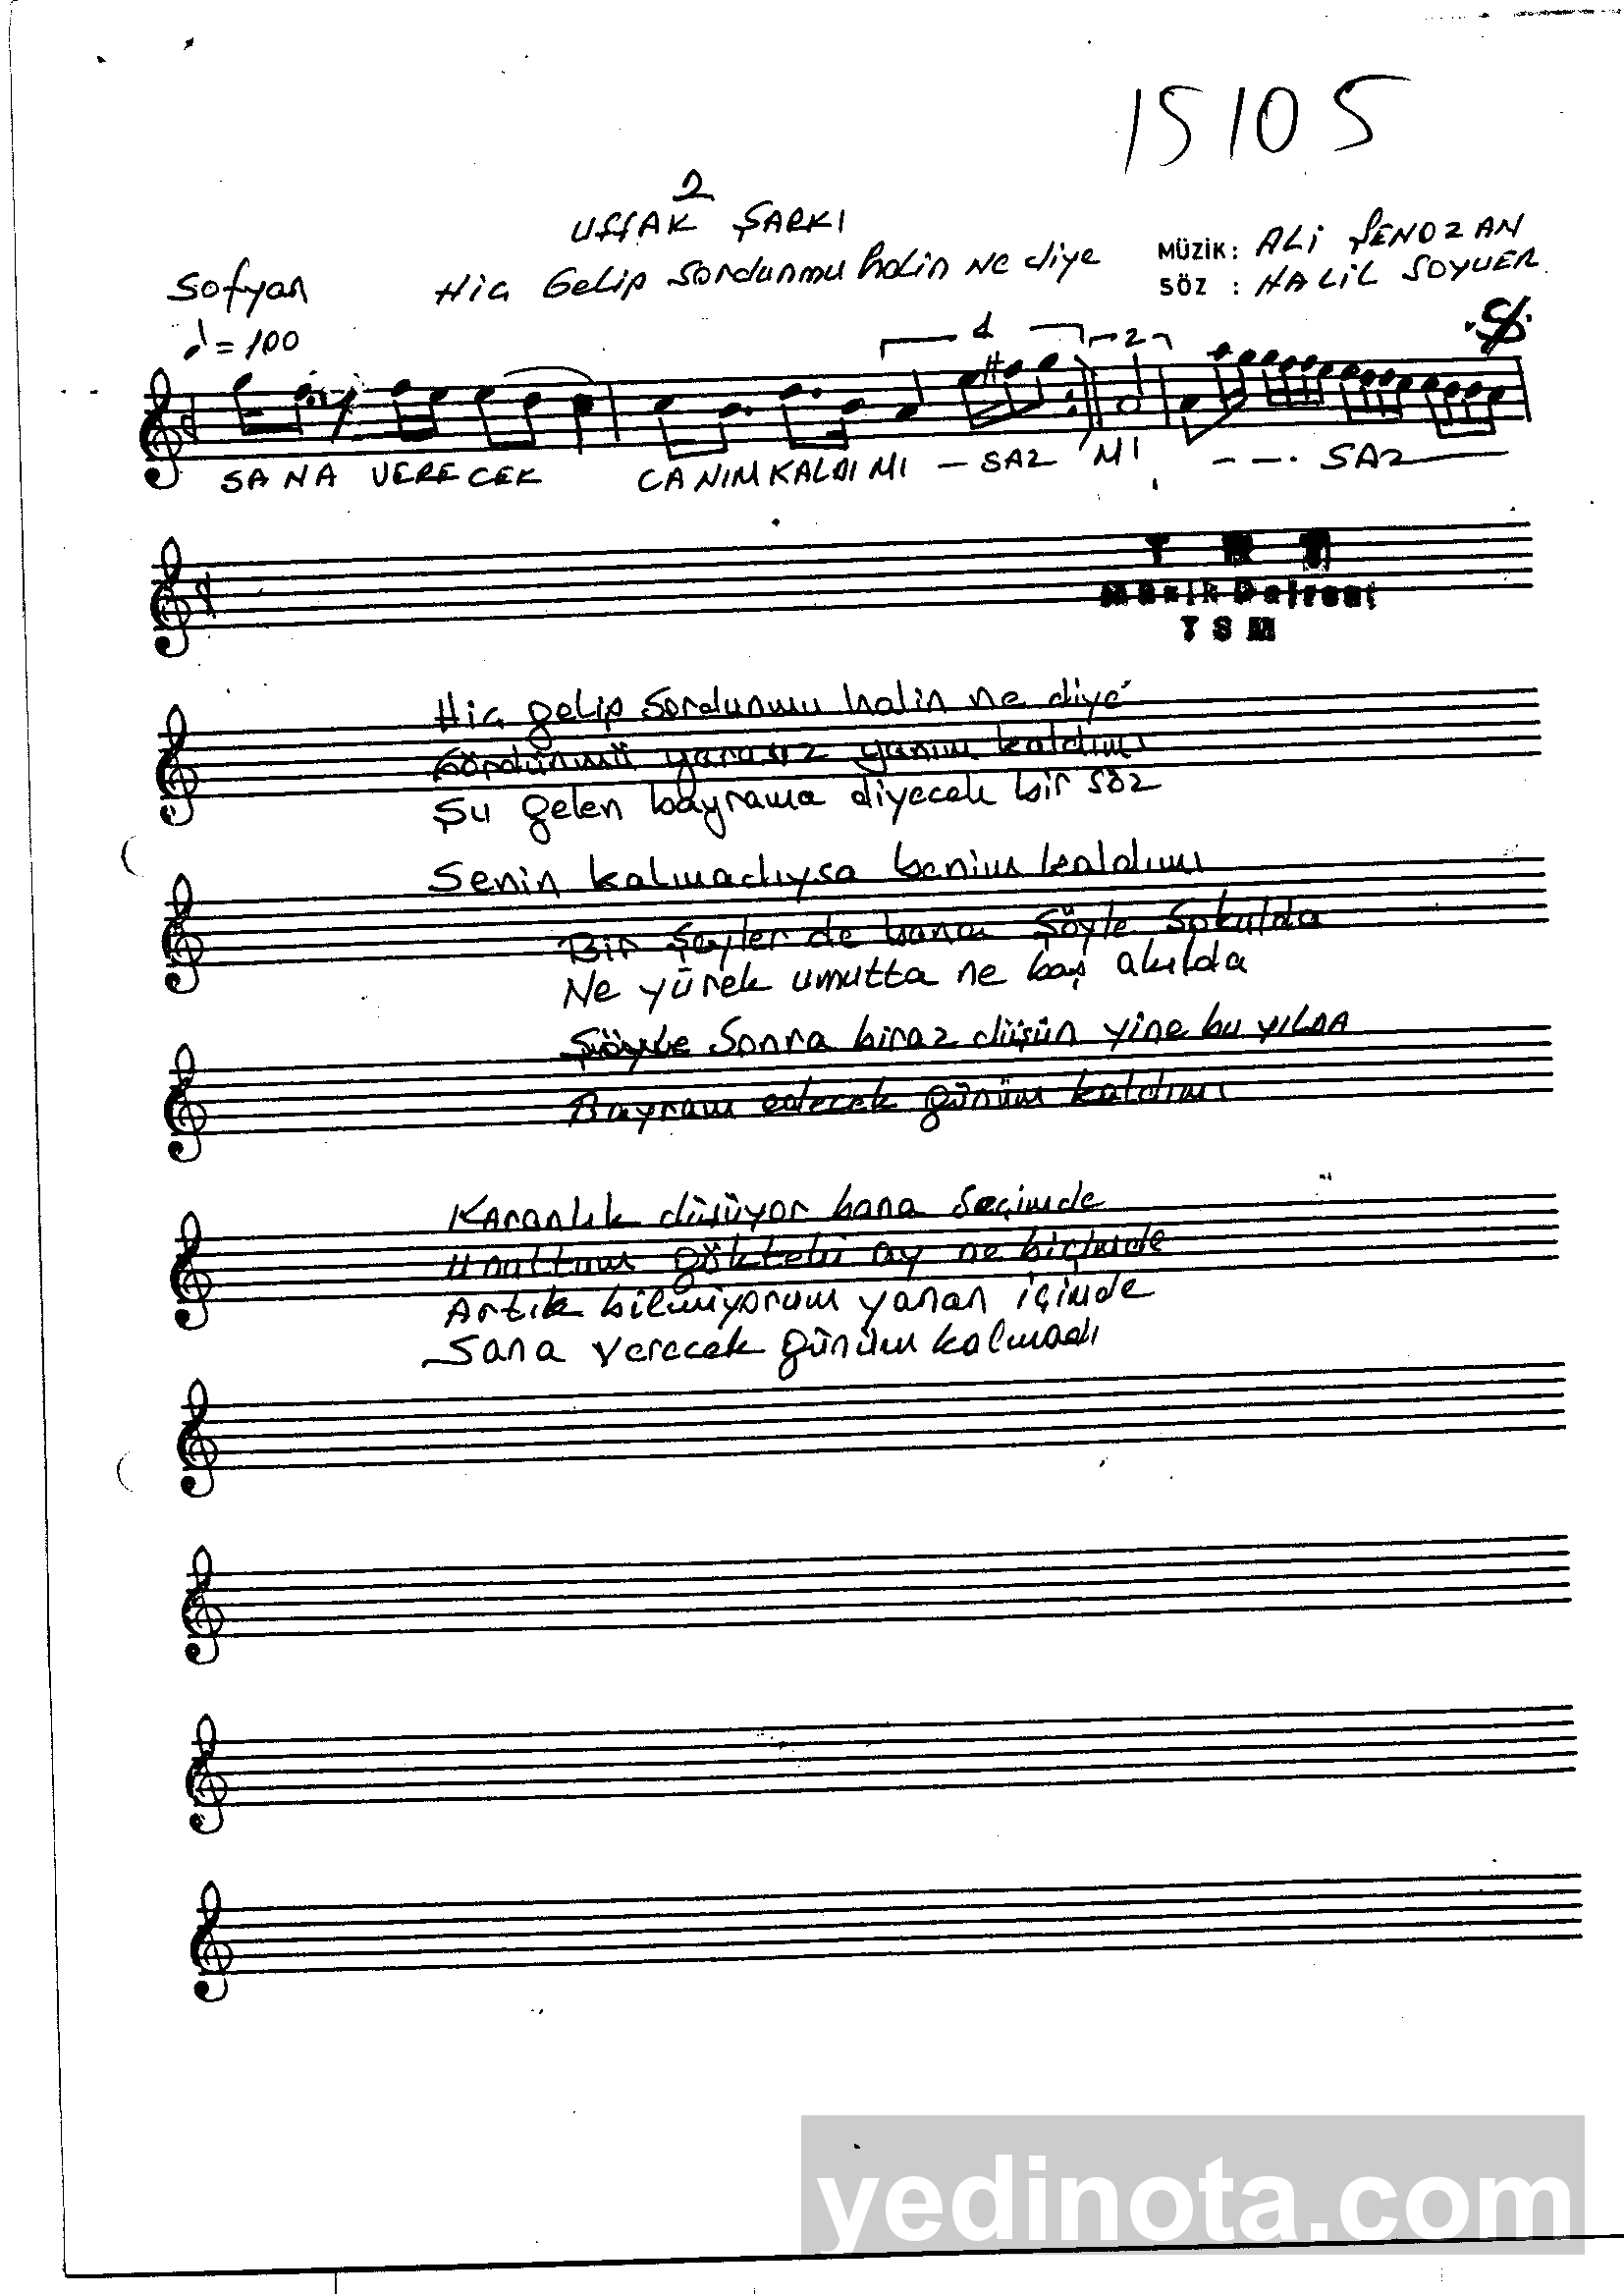 15105
2
UŞŞAK ŞARKI
MÜZİK: ALİ ŞENOZAN
Sofyan
Hiç Gelip Sordunmu halin Ne diye
SÖZ : HALİL SOYUER
= 100
1
2
SANA VERECEK CANIM KALDI MI - SAZ MI - - - SAZ
T R T
Müzik Dairesi
T S M
Hiç gelip Sordunmu halin ne diye
Gördünmü yarasız yanım kaldımı
Şu gelen bayrama diyecek bir söz
Senin kalmadıysa benim kaldımı
Bir Şeyler de bana Şöyle Sokulda
Ne yürek umutta ne baş akılda
Şöyle Sonra biraz düşün yine bu yılda
Bayram edecek günüm kaldımı
Karanlık düşüyor bana Seçimde
Unuttum gökteki ay ne biçimde
Artık bilmiyorum yanan içimde
Sana verecek günüm kalmadı
yedinota.com